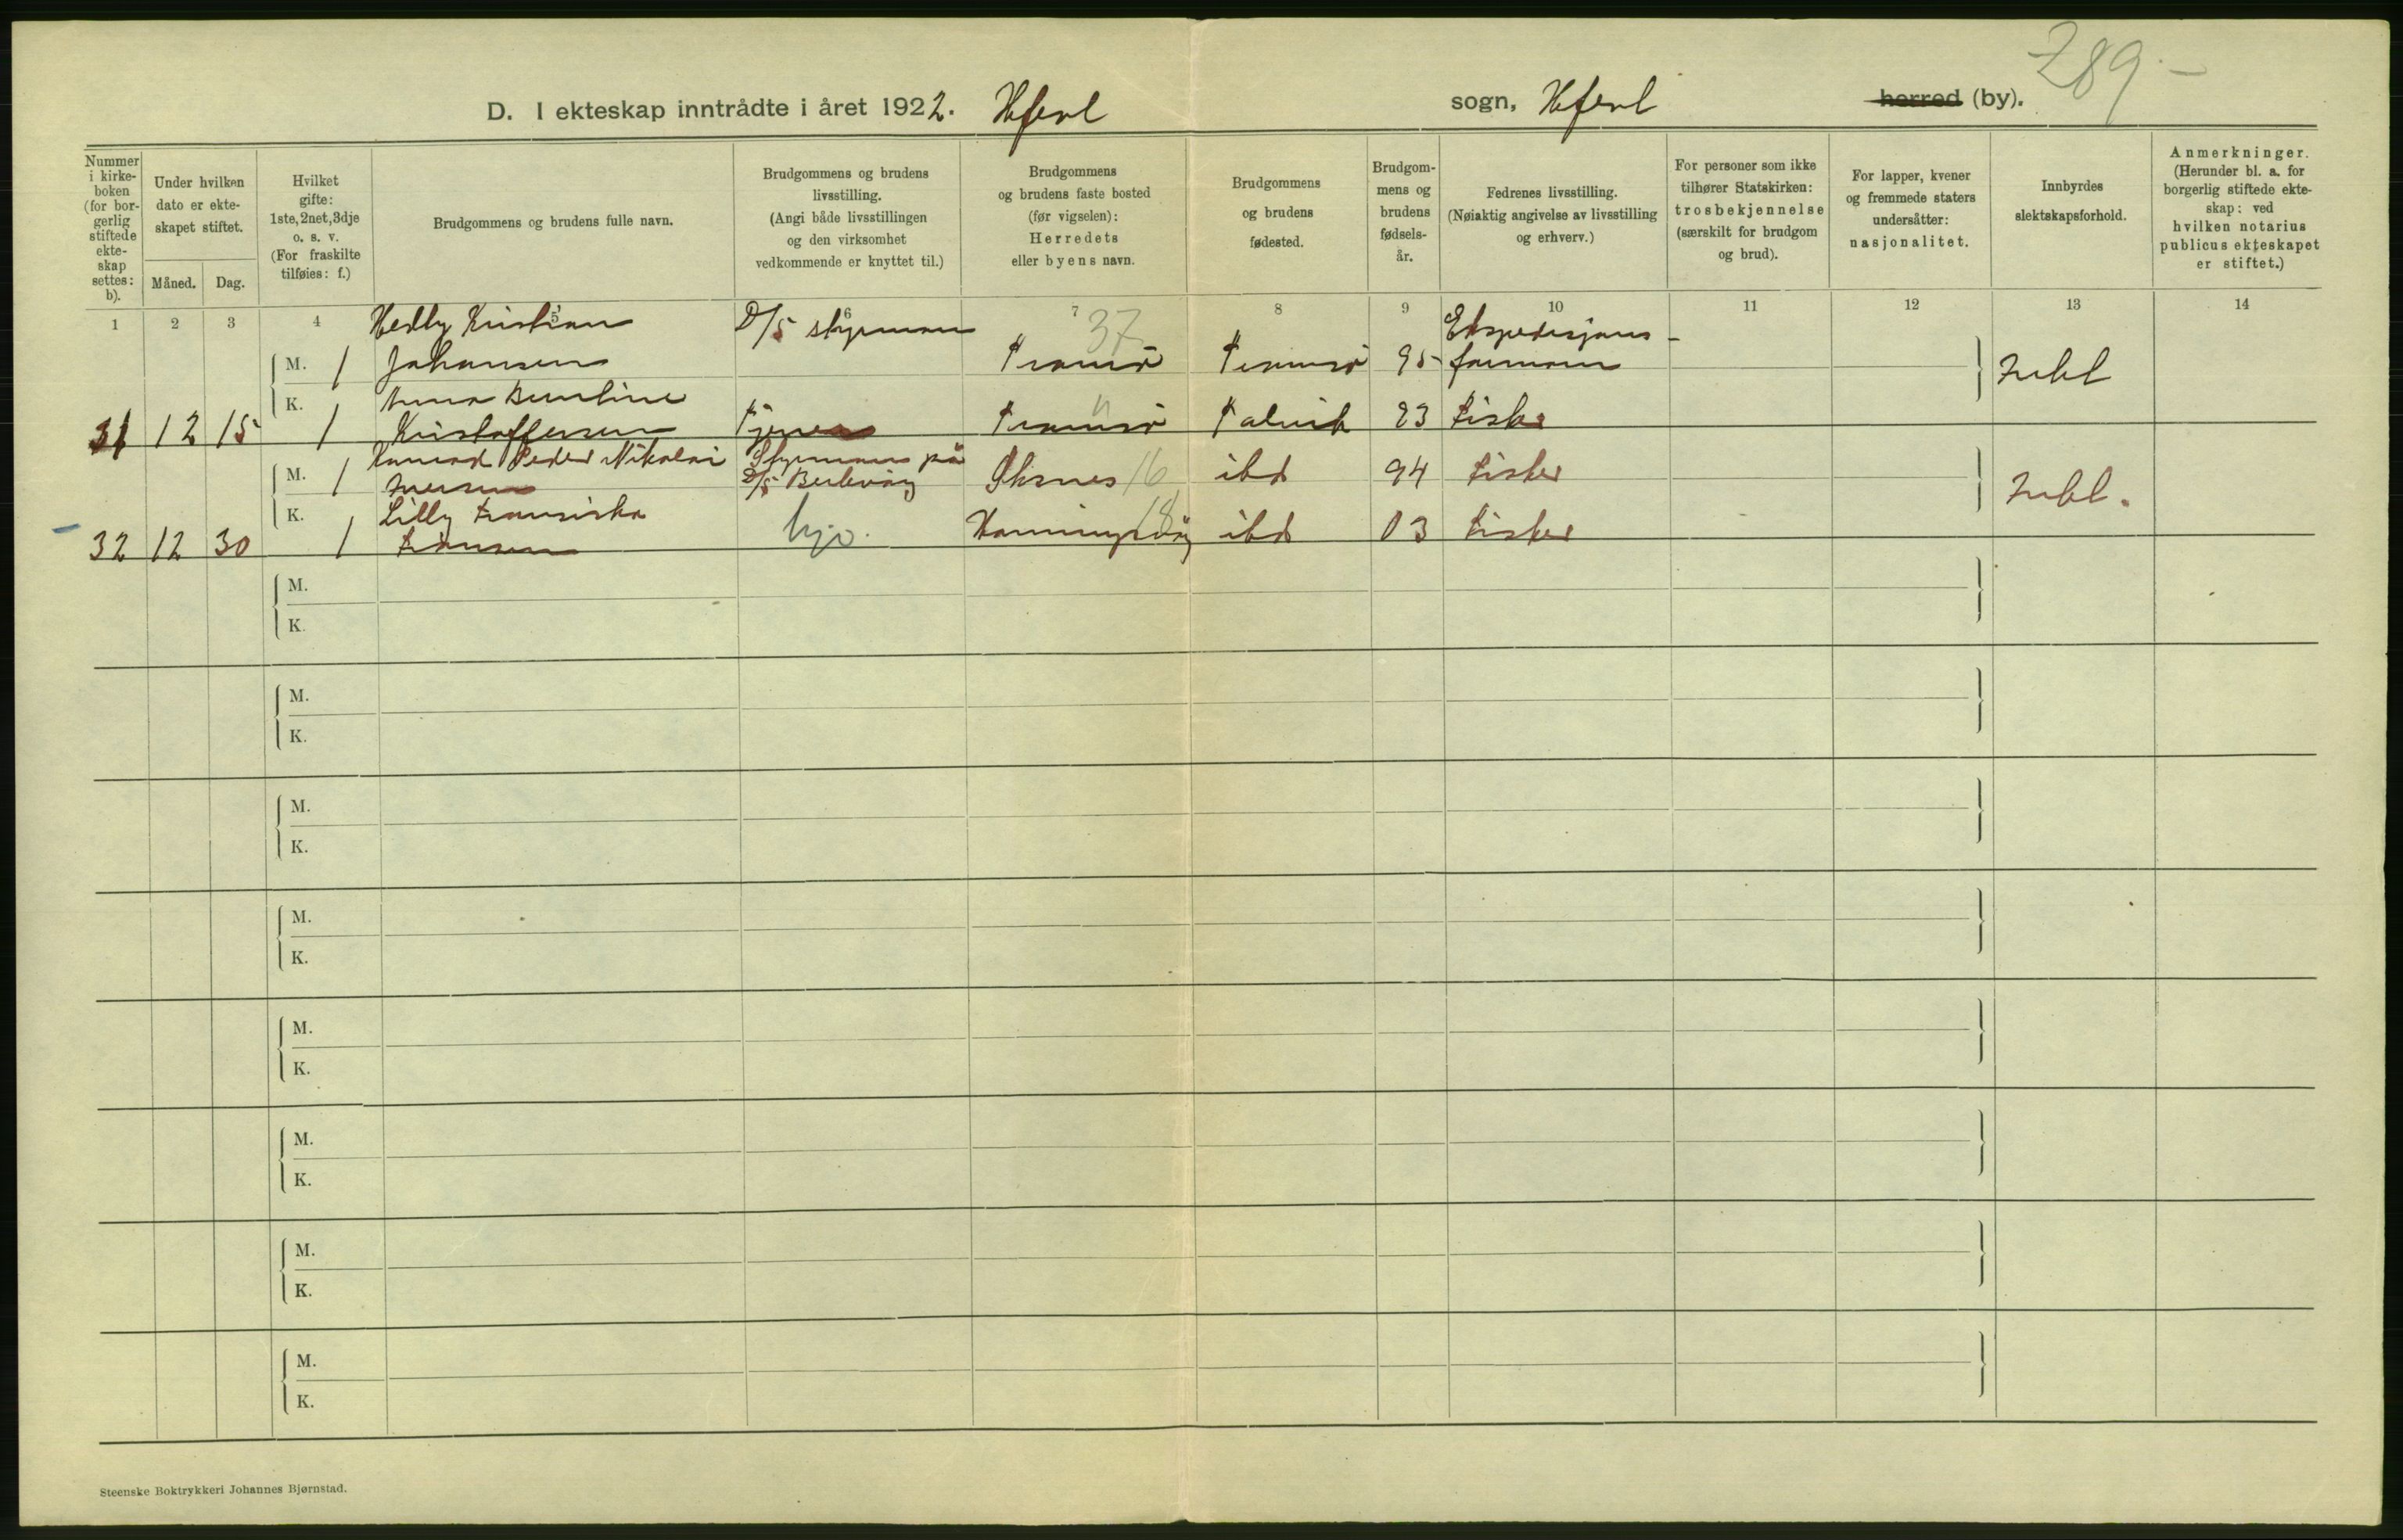 289 -
D. I ekteskap inntrådte i året 1922. Hfest sogn, Hfest herred (by).
Nummer i kirke-boken (for bor-gerlig stiftede ekte-skap settes: b).
Under hvilken dato er ekte-skapet stiftet.
Måned. Dag.
Hvilket gifte: 1ste, 2net, 3dje o. s. v. (For fraskilte tilføies: f.)
Brudgommens og brudens fulle navn.
Brudgommens og brudens livsstilling. (Angi både livsstillingen og den virksomhet vedkommende er knyttet til.)
Brudgommens og brudens faste bosted (før vigselen): Herredets eller byens navn.
Brudgommens og brudens fødested.
Brudgom-mens og brudens fødsels-år.
Fedrenes livsstilling. (Nøiaktig angivelse av livsstilling og erhverv.)
For personer som ikke tilhører Statskirken: trosbekjennelse (særskilt for brudgom og brud).
For lapper, kvener og fremmede staters undersåtter: nasjonalitet.
Innbyrdes slektskapsforhold.
Anmerkninger. (Herunder bl. a. for borgerlig stiftede ekte-skap: ved hvilken notarius publicus ekteskapet er stiftet.)
1 2 3 4 5 6 7 8 9 10 11 12 13 14
Hedly Kristian D/S styrmann 37 Ekspedisjons-
M. 1 Johansen Tromsö Tromsö 95 formann
K. Anna Bentine
31 12 15 1 Kristoffersen Tjener " Tromsö Talvik 93 Fisker
Konrad Peder Nikolai Styrmann på
M. 1 Iversen D/S Berlevåg Øksnes 16 ibd 94 Fisker
K. Lilly Fransiska
32 12 30 1 Hansen hjo. Honningsvåg 18 ibd 03 Fisker
M.
K.
M.
K.
M.
K.
M.
K.
M.
K.
M.
K.
M.
K.
M.
K.
Steenske Boktrykkeri Johannes Bjørnstad.